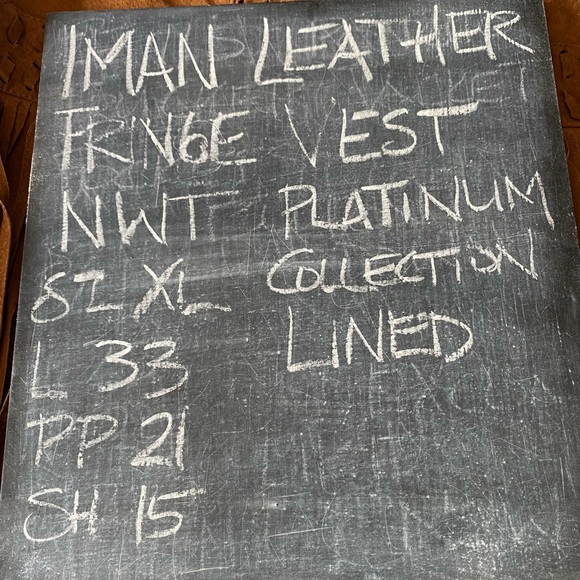 IMAN LEATHER
FRINGE VEST
NWT PLATINUM
SZ XL COLLECTION
L 33 LINED
PP 21
SH 15